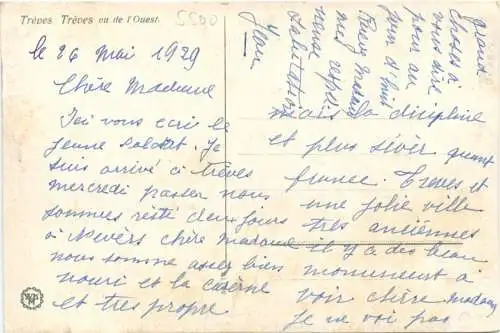 Trèves Trèves vu de l'Ouest.
5500
le 26 Mai 1929
Chère Madame
Ici vous ecri le
jeune soldat. Je
suis arrivé à trèves
mercredi passer nous
sommes resté deux jours
à Nevèrs chère madame
nous somme assez bien
nouri et la caserne
et tres propre
mais la disipline
et plus sévèr quant
france. Treves et
une jolie ville
tres anciènnes
il y à des beau
monument à
voir chère madame
Je ne voi pas
grand
choses à
vous dire
pour au
jour d'hui
Recever Madame
mes respec
tueuse
salutation
Jean